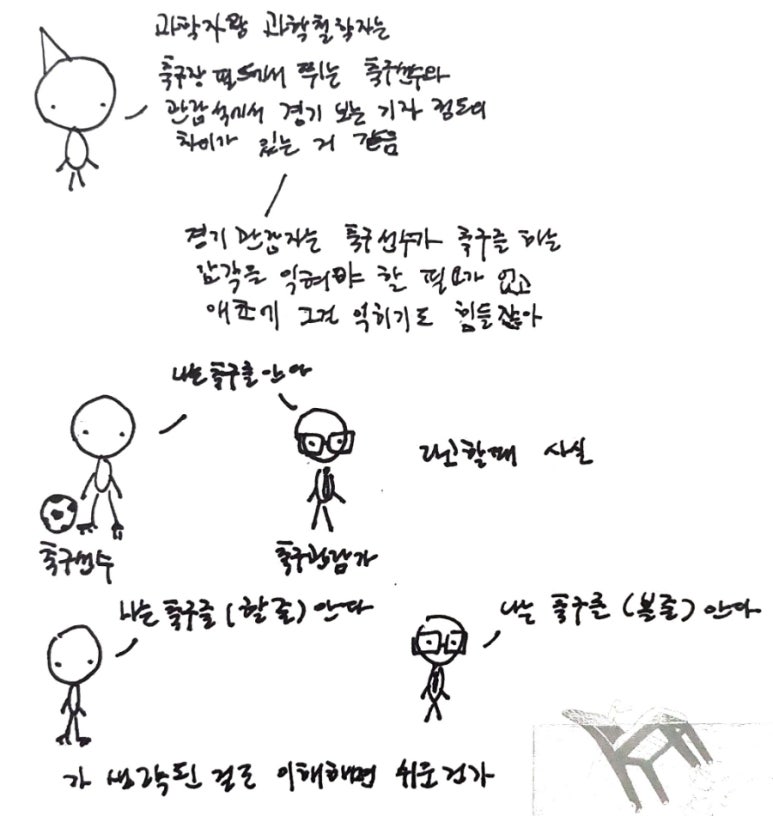 과학자랑 과학철학자는
축구장 필드에서 뛰는 축구선수와
관람석에서 경기 보는 기자 정도의
차이가 있는 거 같음
경기 관람자는 축구선수가 축구를 하는
감각을 익혀야 할 필요가 없고
애초에 그걸 익히기도 힘들잖아
나는 축구를 안다
라고 할때 사실
축구선수
축구관람가
나는 축구를 (할 줄) 안다
나는 축구를 (볼 줄) 안다
가 생략된 걸로 이해하면 쉬운건가